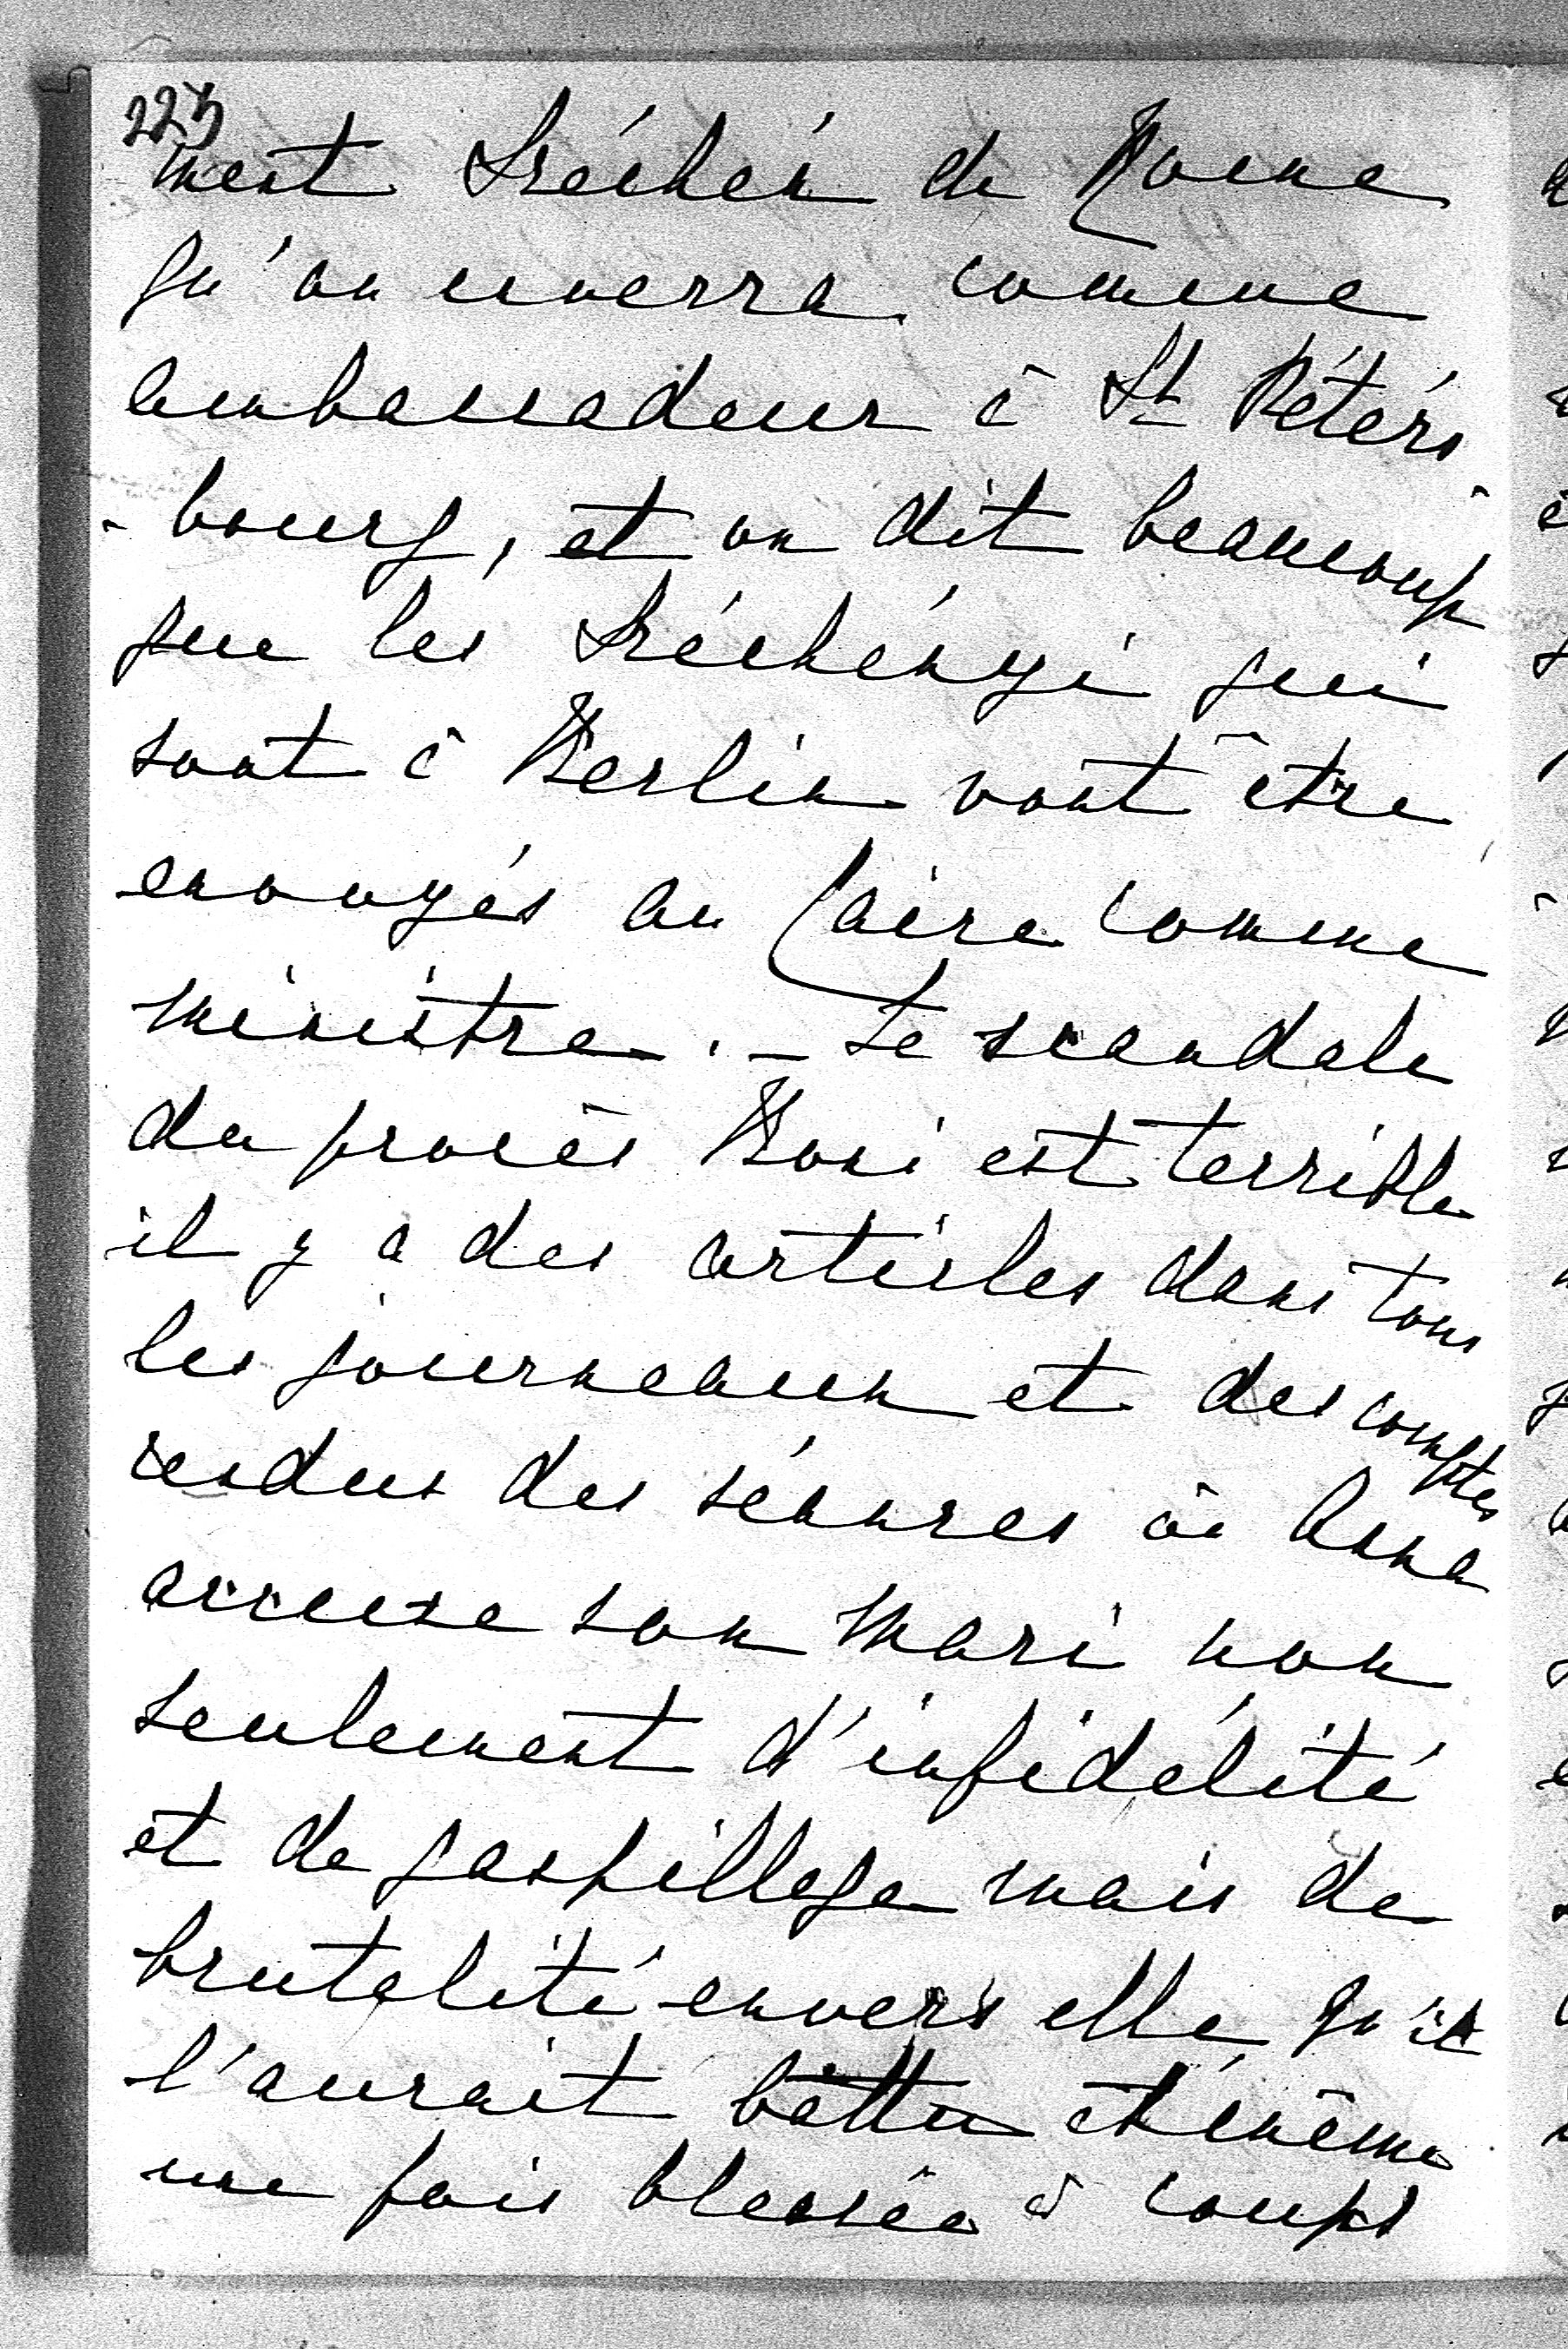 ment Szécsén de Rome
qu'on enverra comme
ambassadeur à St Péters
-bourg, et on dit beaucoup
que les Széchényi qui
sont à Berlin vont être
envoyés au Caire comme
ministre. - Le scandale
du procès Boni est terrible
il y a des articles dans tous
les journeaux et des comptes
rendus des séances où Anna
accuse son mari non
seulement d'infidélité
et de gaspillage mais de
brutalité envers elle qu'il
l'aurait battu et même
une fois blessée à coups